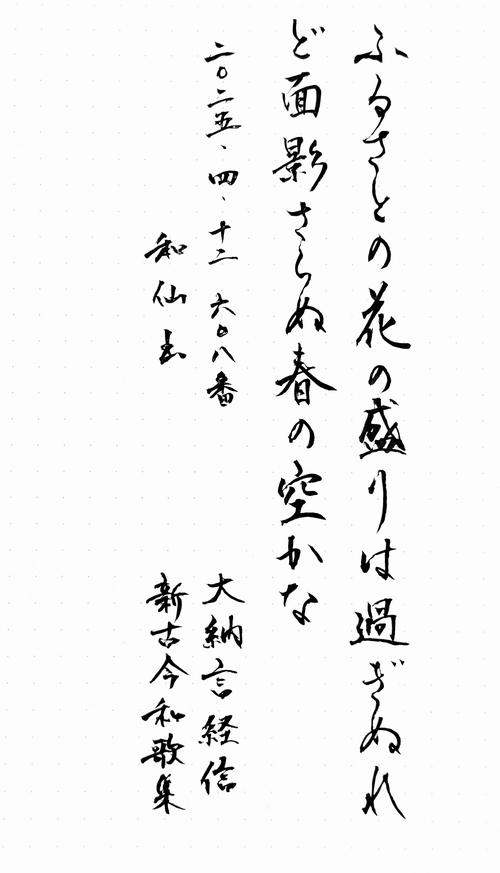 ふるさとの花の盛りは過ぎぬれ
ど面影さらぬ春の空かな
二〇二五、四、十二 六〇八番
大納言経信
和仙書
新古今和歌集